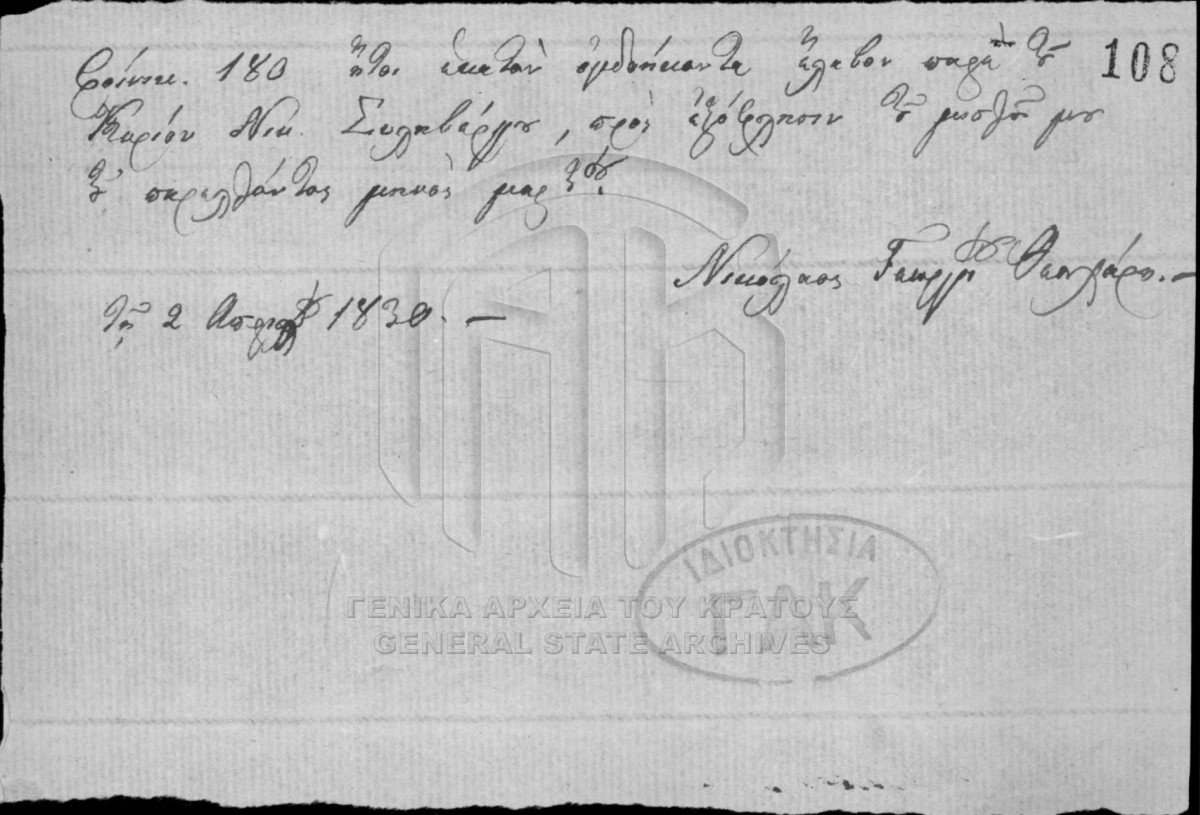 Φοίνικ. 180 ἤτοι ἑκατὸν ὀγδοήκοντα ἔλαβον παρὰ τοῦ 108
Κυρίου Νικ. πρὸς ἐξόφλησιν τοῦ μισθοῦ μου
τοῦ παρελθόντος μηνὸς μαρτίου.
Νικόλαος Γεωργίου
τῇ 2 Απριλίου 1830. —
ΙΔΙΟΚΤΗΣΙΑ
ΓΑΚ
ΓΕΝΙΚΑ ΑΡΧΕΙΑ ΤΟΥ ΚΡΑΤΟΥΣ
GENERAL STATE ARCHIVES